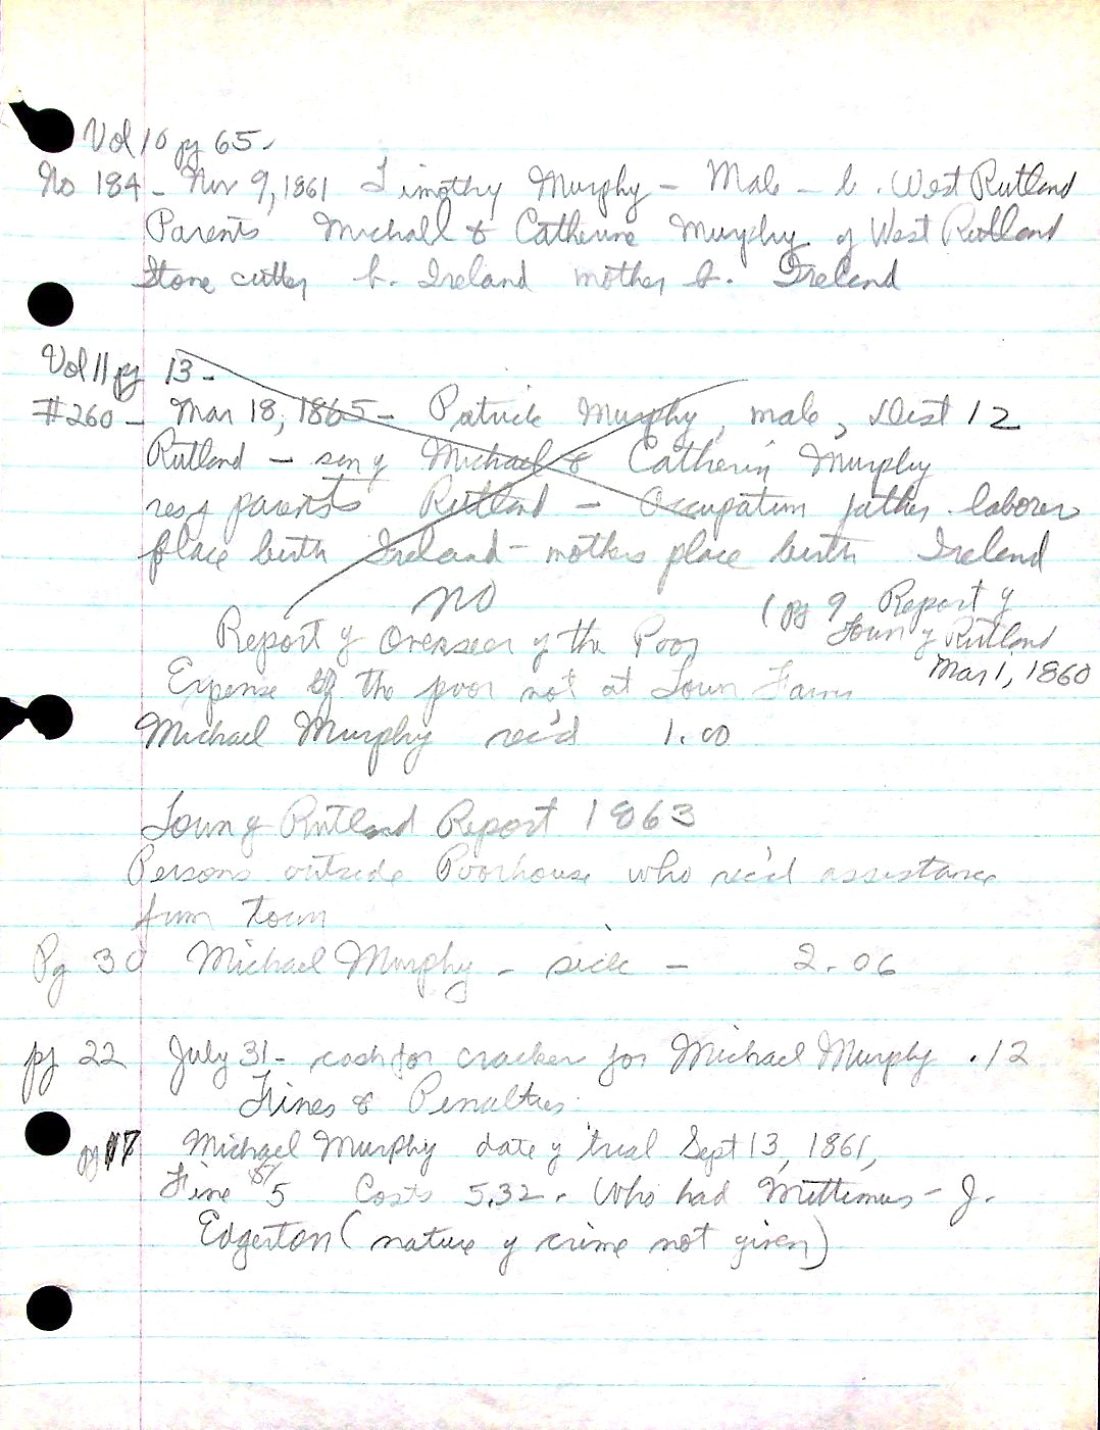 Vol 10 pg 65-
No 184 - Nov 9, 1861 Timothy Murphy - Male - b. West Rutland
Parents Michall & Catherine Murphy of West Rutland
Stone cutter b. Ireland mother b. Ireland
Vol 11 pg 13-
#260 - Mar 18, 1865 - Patrick Murphy, male, Dist 12
Rutland - son of Michael & Catherin Murphy
res of parents Rutland - Occupation father laborer
place birth Ireland - mothers place birth Ireland
NO
(pg 9 Report of
Report of Overseer of the Poor
Town of Rutland
Mar 1, 1860
Expense of the poor not at Town Farm
Michael Murphy rec'd 1.00
Town of Rutland Report 1863
Persons outside Poorhouse who rec'd assistance
from town
Pg 30 Michael Murphy - sick - 2.06
pg 22 July 31 - cash for cracker for Michael Murphy .12
Fines & Penalties
pg 17 Michael Murphy date of trial Sept 13, 1861,
Fine $5 Costs 5.32. Who had Mittimus - J.
Edgerton (nature of crime not given)